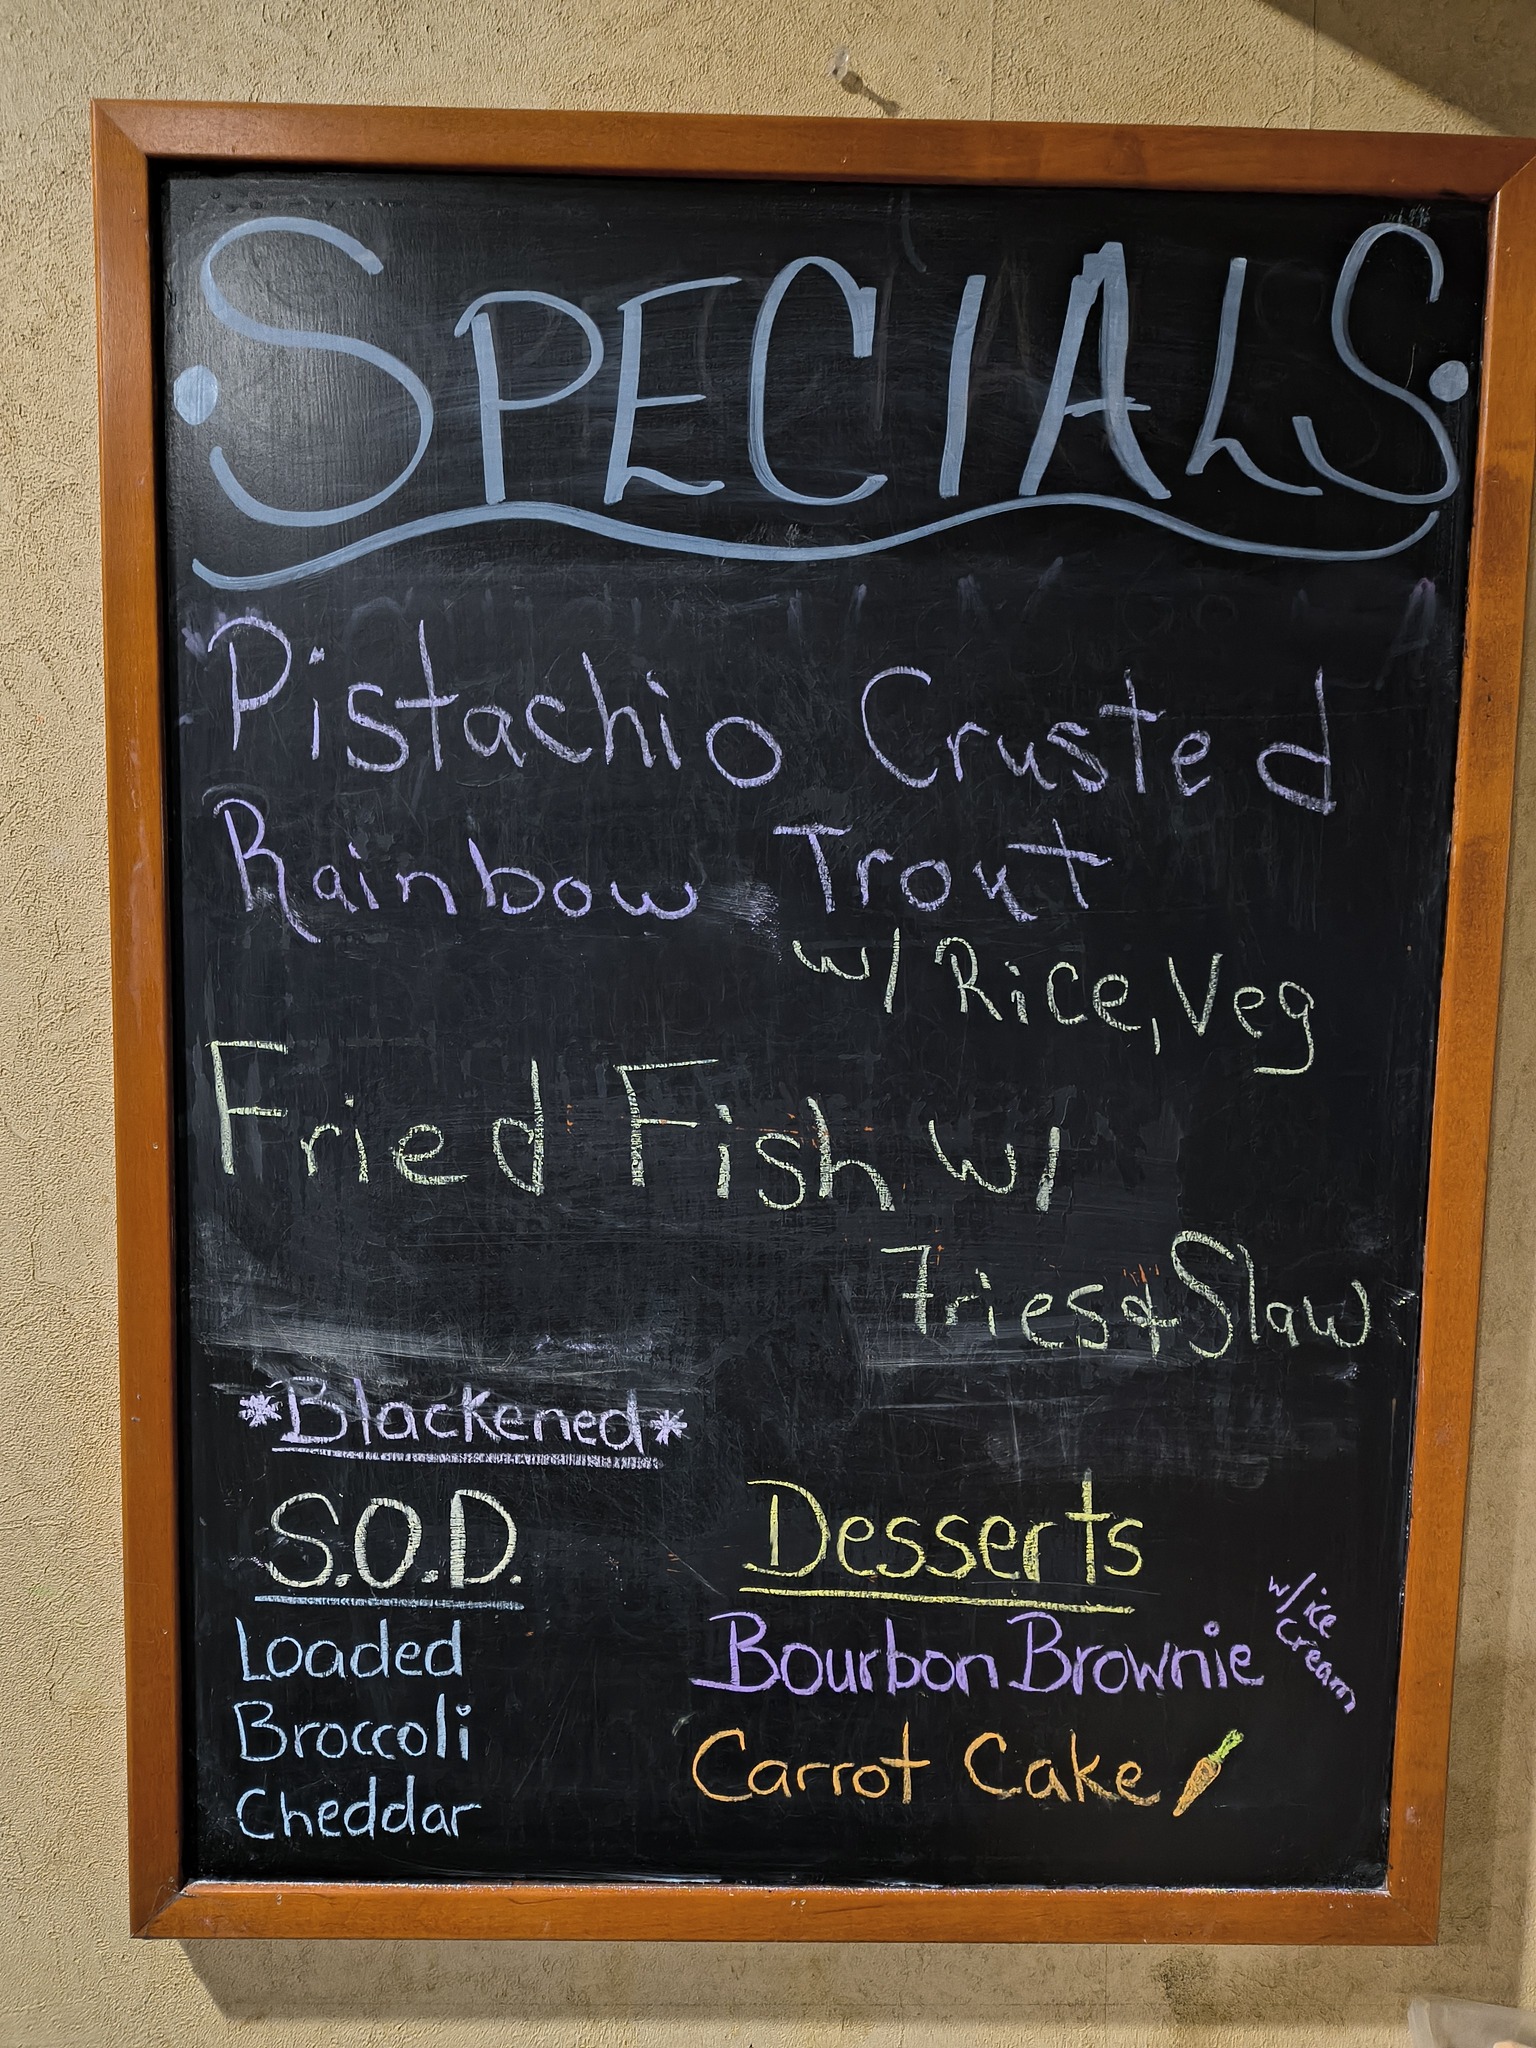 SPECIALS
Pistachio Crusted
Rainbow Trout
w/ Rice, Veg
Fried Fish w/
Fries & Slaw
*Blackened*
S.O.D.
Loaded
Broccoli
Cheddar
Desserts
Bourbon Brownie
w/ ice
cream
Carrot Cake